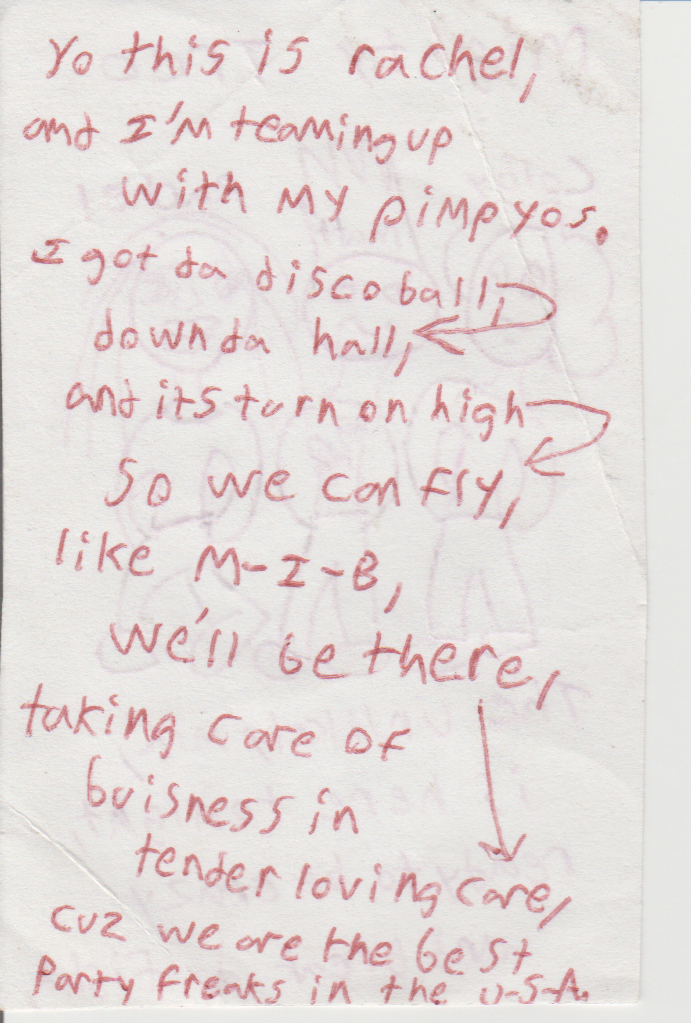 Yo this is rachel,
and I'm teaming up
with my pimp yos.
I got da disco ball,
down da hall,
and its turn on high
So we can fly,
like M-I-B,
we'll be there,
taking care of
buisness in
tender loving care,
cuz we are the best
Party freaks in the U-S-A.